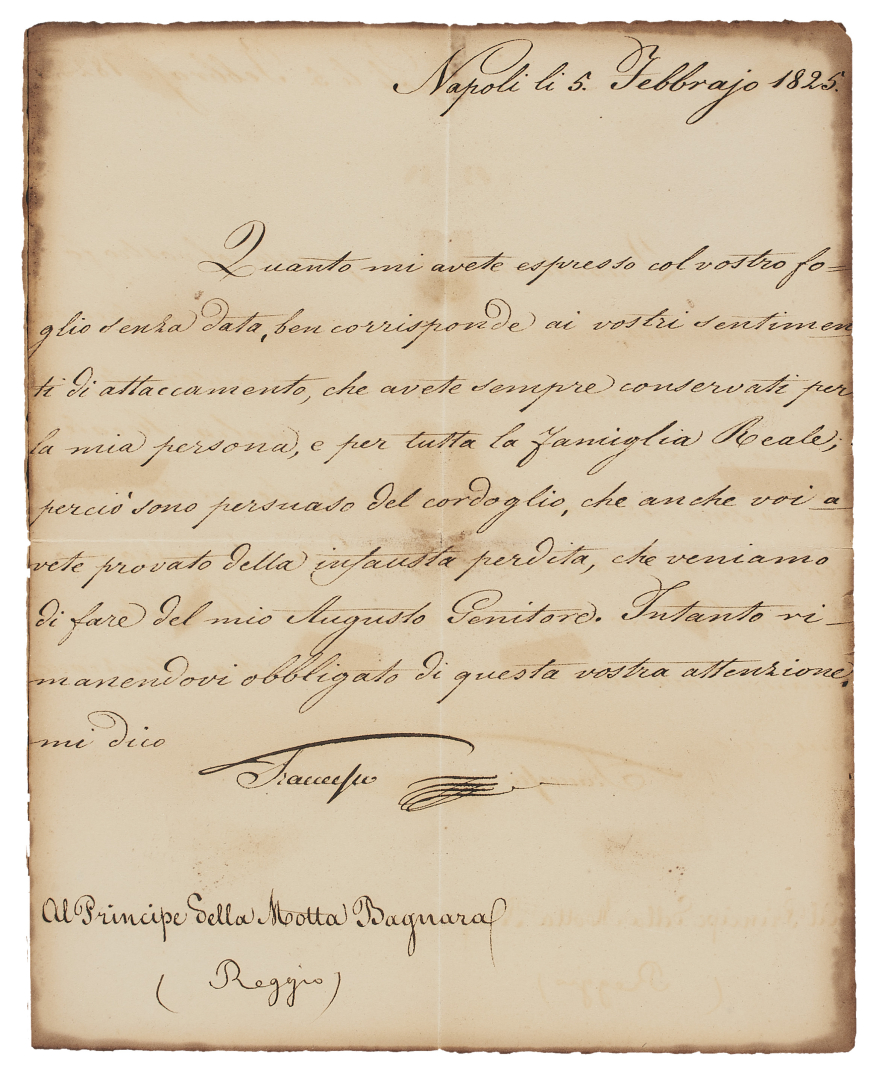 Napoli li 5. Febbrajo 1825.
Quanto mi avete espresso col vostro fo=
glio senza data, ben corrisponde ai vostri sentimen
ti di attaccamento, che avete sempre conservati per
la mia persona, e per tutta la famiglia Reale;
perciò sono persuaso del cordoglio, che anche voi a
vete provato della infausta perdita, che veniamo
di fare del mio Augusto Genitore. Intanto ri-
manendovi obbligato di questa vostra attenzione,
mi dico
Francesco
Al Principe della Motta Bagnara
(Reggio)